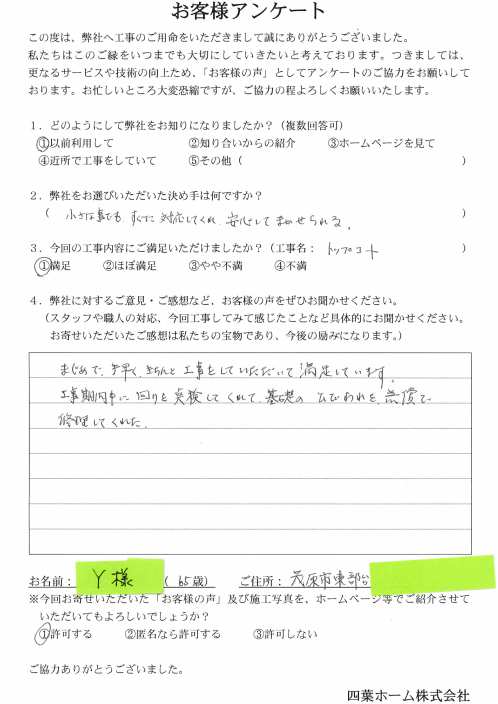 お客様アンケート
この度は、弊社へ工事のご用命をいただきまして誠にありがとうございました。
私たちはこのご縁をいつまでも大切にしていきたいと考えております。つきましては、
更なるサービスや技術の向上ため、「お客様の声」としてアンケートのご協力をお願いして
おります。お忙しいところ大変恐縮ですが、ご協力の程よろしくお願いいたします。
1．どのようにして弊社をお知りになりましたか？（複数回答可）
①以前利用して ②知り合いからの紹介 ③ホームページを見て
④近所で工事をしていて ⑤その他（ ）
2．弊社をお選びいただいた決め手は何ですか？
（ 小さな事でも、すぐに対応してくれ、安心してまかせられる。 ）
3．今回の工事内容にご満足いただけましたか？（工事名： トップコート ）
①満足 ②ほぼ満足 ③やや不満 ④不満
4．弊社に対するご意見・ご感想など、お客様の声をぜひお聞かせください。
（スタッフや職人の対応、今回工事してみて感じたことなど具体的にお聞かせください。
お寄せいただいたご感想は私たちの宝物であり、今後の励みになります。）
まじめで、手早く、きちんと工事をしていただいて満足しています。
工事期間中に回りを点検してくれて、基礎のひびわれを、無償で
修理してくれた。
お名前： Y様 （ 65歳） ご住所： 茂原市東部台
※今回お寄せいただいた「お客様の声」及び施工写真を、ホームページ等でご紹介させて
いただいてもよろしいでしょうか？
①許可する ②匿名なら許可する ③許可しない
ご協力ありがとうございました。
四葉ホーム株式会社